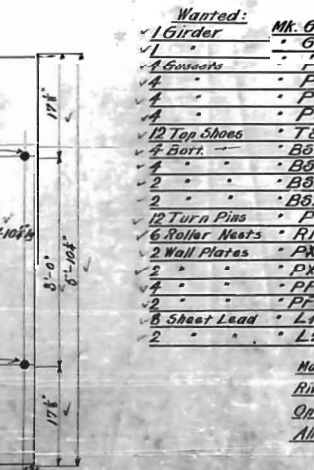 Wanted:
1 Girder Mk. G
1 " " G
4 Gussets "
4 " " P
4 " " P
4 " " P
12 Top Shoes " TS
4 Bott. — " BS
4 " " BS
2 " " BS
2 " " BS
12 Turn Pins " P
6 Roller Nests " R1
2 Wall Plates " PX
2 " " PX
4 " " PP
2 " "
8 Sheet Lead " L
2 " " L
17⅛"
8'-0"
17⅛"